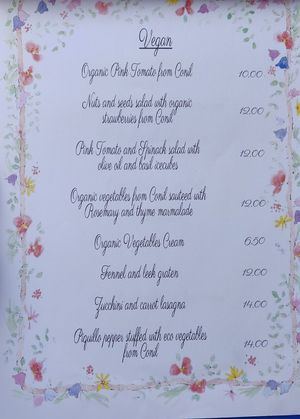 Vegan
Organic Pink Tomato from Conil 10,00
Nuts and seeds salad with organic
strawberries from Conil 12,00
Pink Tomato and Spinack salad with
olive oil and basil icecubes 12,00
Organic vegetables from Conil sauteed with
Rosemary and thyme marmalade 12,00
Organic Vegetables Cream 6,50
Fennel and leek graten 12,00
Zucchini and carrot lasagna 14,00
Piquillo pepper stuffed with eco vegetables
from Conil 14,00